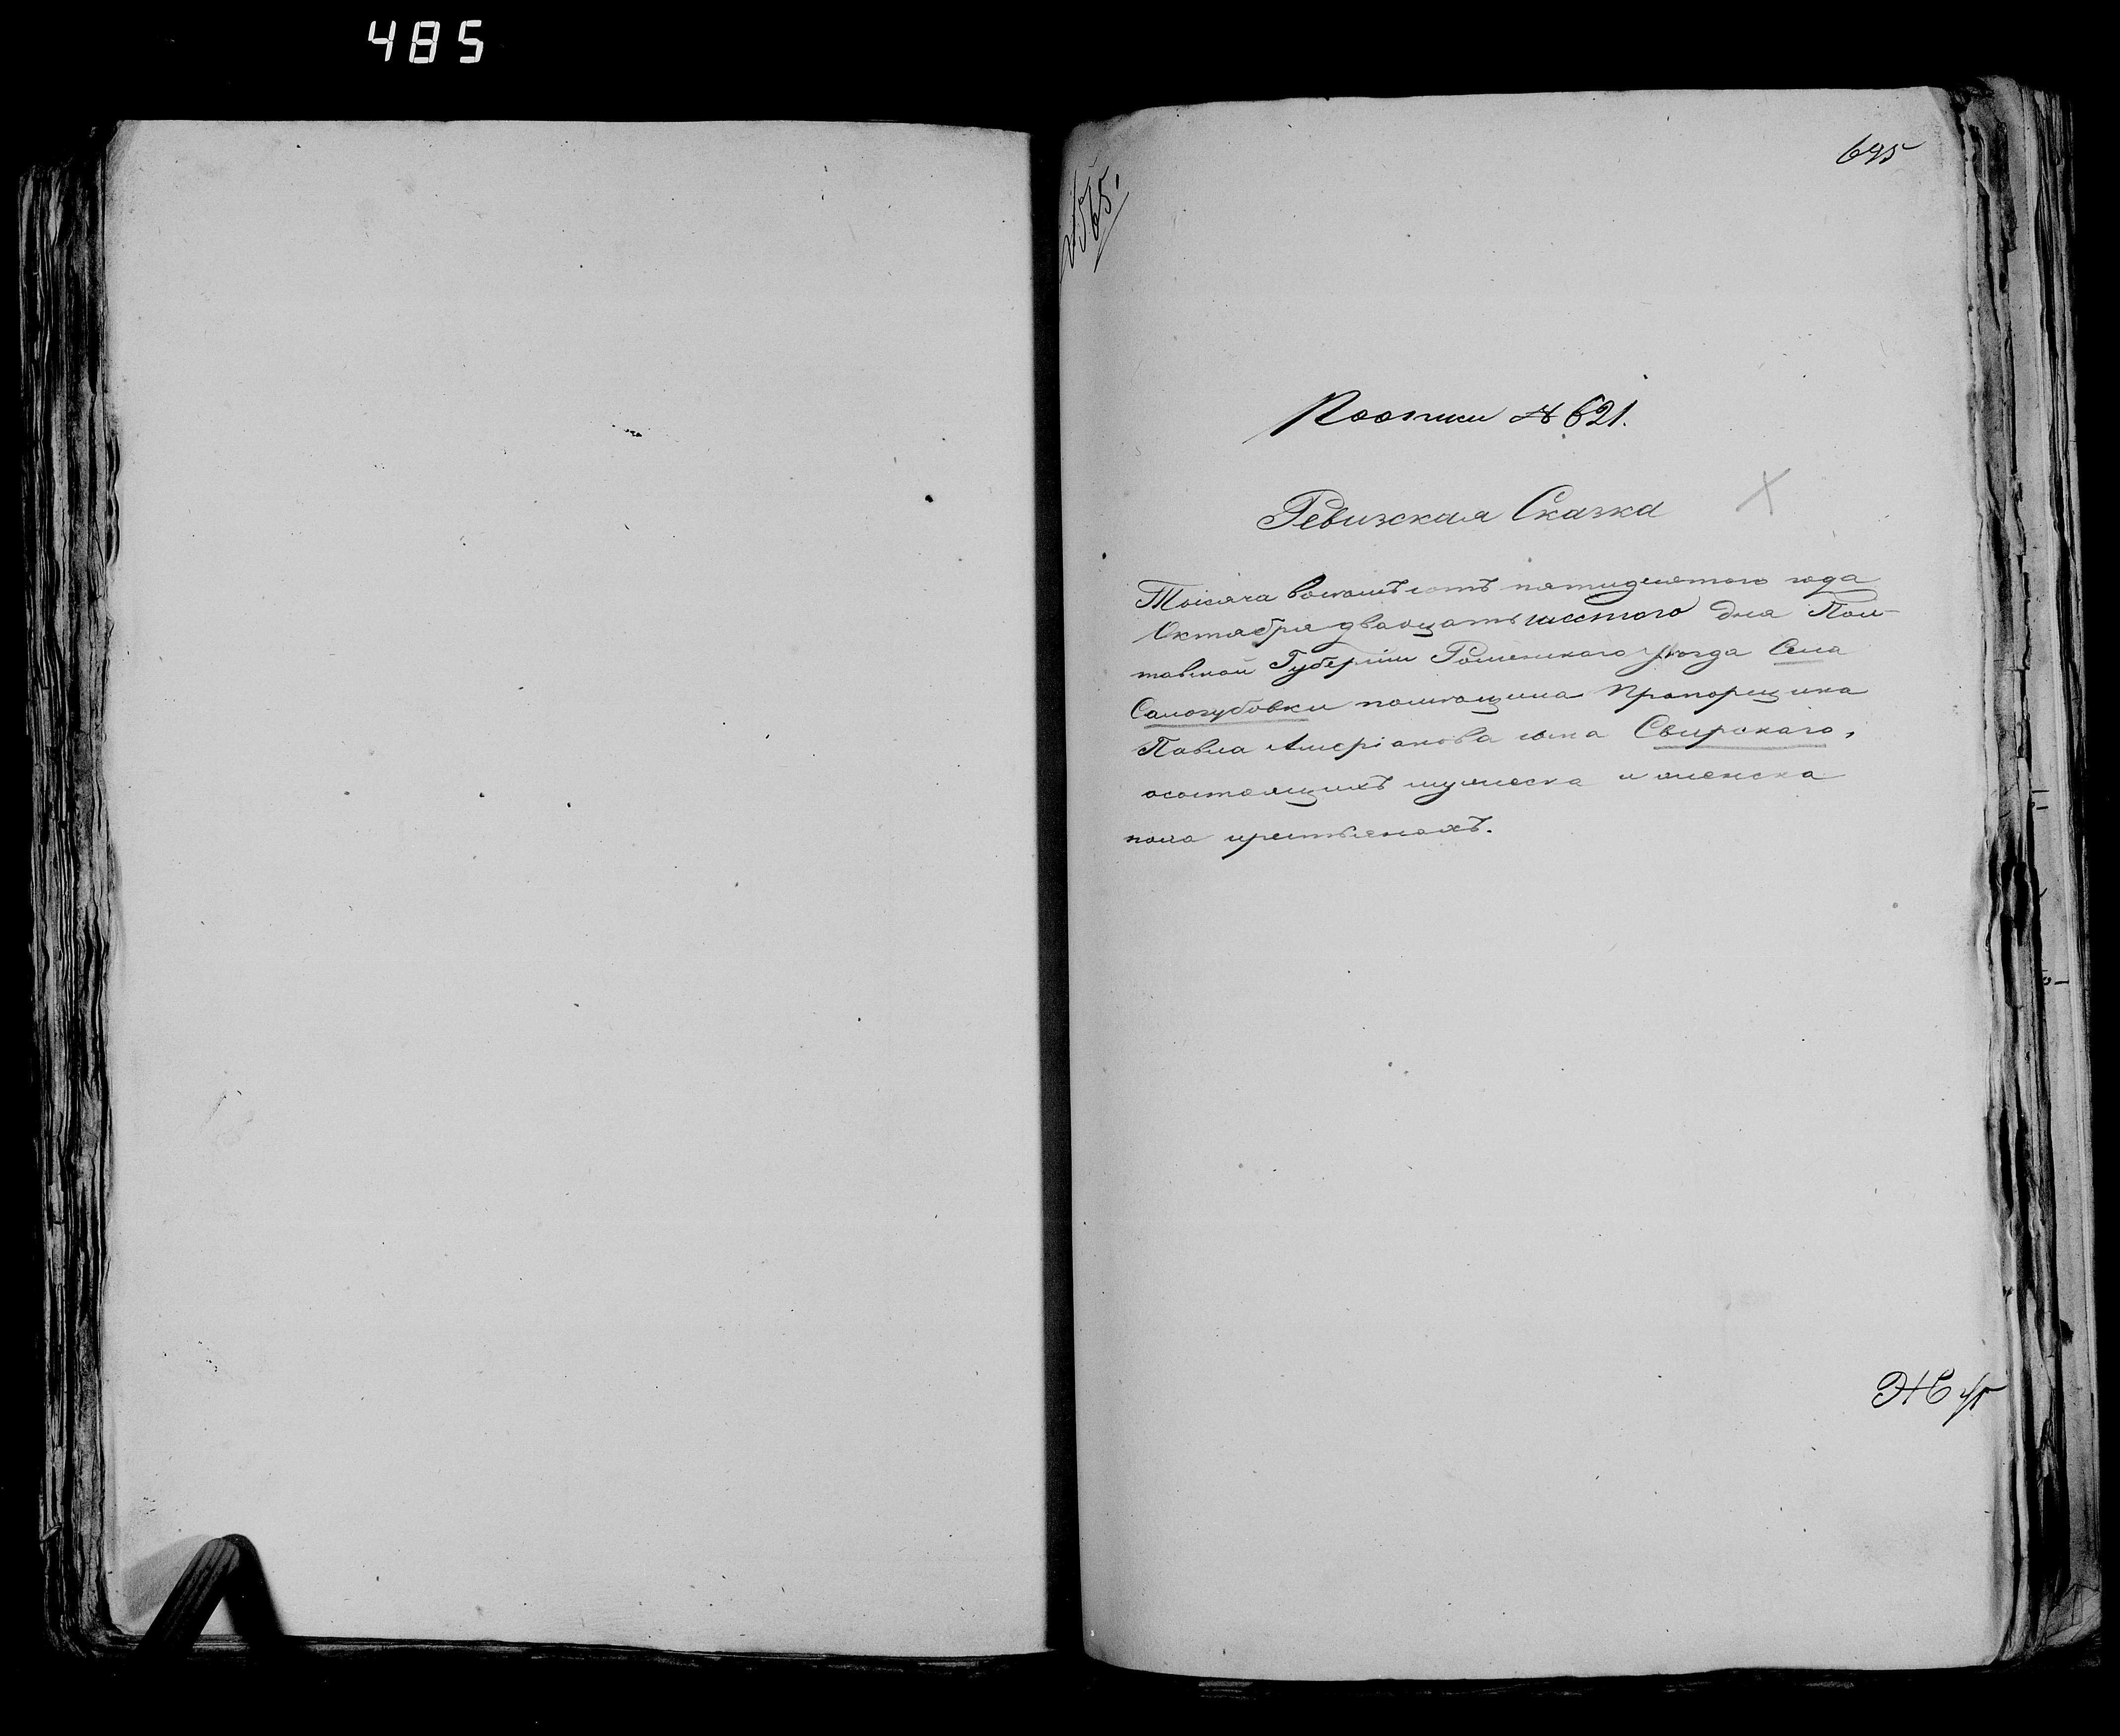 485
695
№ 565.
Почтики № 621.
Ревизская Сказка
Тысяча восемъсотъ пятидесятого года
Октября двадцать шестого дня Пол-
тавской Губерніи Роменского уѣзда Села
Салогубовки помѣщика Прапорщика
Павла сына Свирскаго,
осостоящихъ мужеска и женска
пола крестьянахъ.